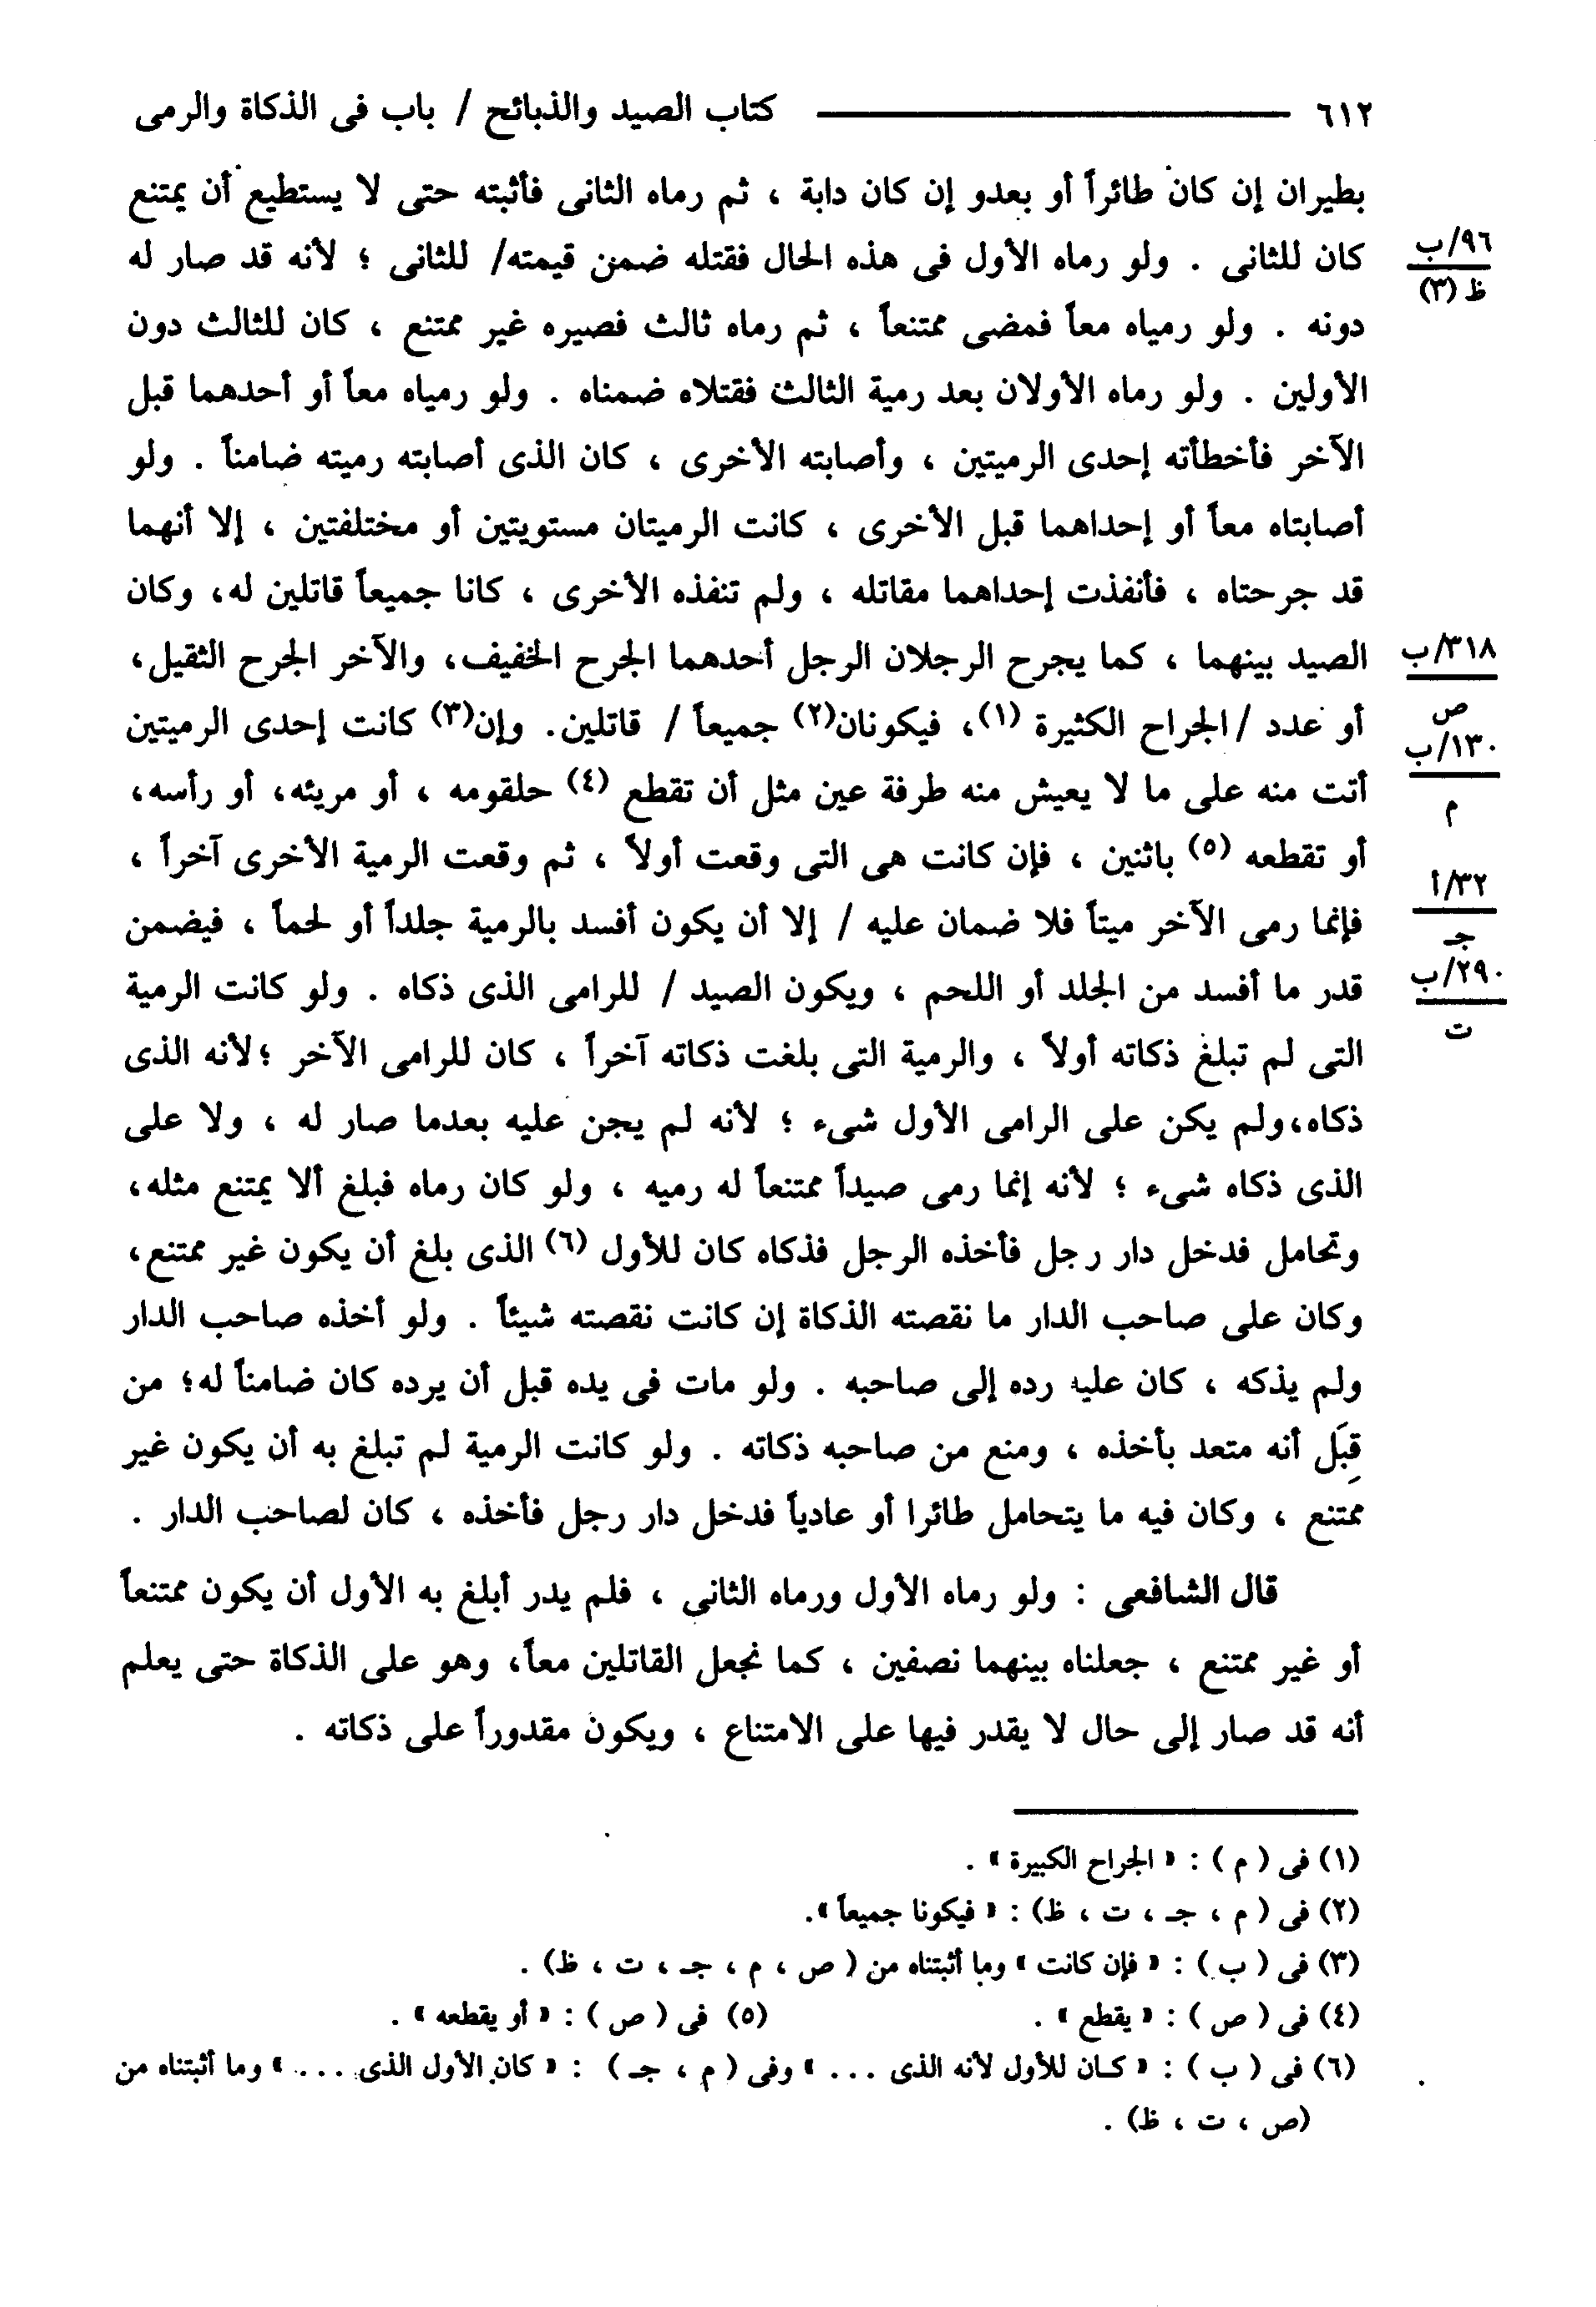 ٦١٢ ــــــــــــ كتاب الصيد والذبائح / باب فى الذكاة والرمى
بطيران إن كان طائراً أو بعدو إن كان دابة ، ثم رماه الثانى فأثبته حتى لا يستطيع أن يمتنع
كان للثانى . ولو رماه الأول فى هذه الحال فقتله ضمن قيمته/ للثانى ؛ لأنه قد صار له
٩٦/ب
ظ (٣)
دونه . ولو رمياه معاً فمضى ممتنعاً ، ثم رماه ثالث فصيره غير ممتنع ، كان للثالث دون
الأولين . ولو رماه الأولان بعد رمية الثالث فقتلاه ضمناه . ولو رمياه معاً أو أحدهما قبل
الآخر فأخطأته إحدى الرميتين ، وأصابته الأخرى ، كان الذى أصابته رميته ضامناً . ولو
أصابتاه معاً أو إحداهما قبل الأخرى ، كانت الرميتان مستويتين أو مختلفتين ، إلا أنهما
قد جرحتاه ، فأنفذت إحداهما مقاتله ، ولم تنفذه الأخرى ، كانا جميعاً قاتلين له، وكان
الصيد بينهما ، كما يجرح الرجلان الرجل أحدهما الجرح الخفيف، والآخر الجرح الثقيل،
٣١٨/ب
ص
أو عدد /الجراح الكثيرة (١)، فيكونان(٢) جميعاً / قاتلين. وإن(٣) كانت إحدى الرميتين
١٣٠/ب
م
أتت منه على ما لا يعيش منه طرفة عين مثل أن تقطع (٤) حلقومه ، أو مريئه، أو رأسه،
أو تقطعه (٥) باثنين ، فإن كانت هى التى وقعت أولاً ، ثم وقعت الرمية الأخرى آخراً ،
فإنما رمى الآخر ميتاً فلا ضمان عليه / إلا أن يكون أفسد بالرمية جلداً أو لحماً ، فيضمن
٣٢/أ
جـ
قدر ما أفسد من الجلد أو اللحم ، ويكون الصيد / للرامى الذى ذكاه . ولو كانت الرمية
٢٩٠/ب
ت
التى لم تبلغ ذكاته أولاً ، والرمية التى بلغت ذكاته آخراً ، كان للرامى الآخر ؛لأنه الذى
ذكاه،ولم يكن على الرامى الأول شىء ؛ لأنه لم يجن عليه بعدما صار له ، ولا على
الذى ذكاه شىء ؛ لأنه إنما رمى صيداً ممتنعاً له رميه ، ولو كان رماه فبلغ ألا يمتنع مثله،
وتحامل فدخل دار رجل فأخذه الرجل فذكاه كان للأول (٦) الذى بلغ أن يكون غير ممتنع،
وكان على صاحب الدار ما نقصته الذكاة إن كانت نقصته شيئاً . ولو أخذه صاحب الدار
ولم يذكه ، كان عليه رده إلى صاحبه . ولو مات فى يده قبل أن يرده كان ضامناً له؛ من
قِبَل أنه متعد بأخذه ، ومنع من صاحبه ذكاته . ولو كانت الرمية لم تبلغ به أن يكون غير
ممتنع ، وكان فيه ما يتحامل طائرا أو عادياً فدخل دار رجل فأخذه ، كان لصاحب الدار .
قال الشافعى : ولو رماه الأول ورماه الثانى ، فلم يدر أبلغ به الأول أن يكون ممتنعاً
أو غير ممتنع ، جعلناه بينهما نصفين ، كما نجعل القاتلين معاً، وهو على الذكاة حتى يعلم
أنه قد صار إلى حال لا يقدر فيها على الامتناع ، ويكون مقدوراً على ذكاته .
(١) فى ( م ) : « الجراح الكبيرة » .
(٢) فى ( م ، جـ ، ت ، ظ) : « فيكونا جميعاً ».
(٣) فى ( ب ) : « فإن كانت » وما أثبتناه من ( ص ، م ، جـ ، ت ، ظ) .
(٤) فى ( ص ) : « يقطع » . (٥) فى ( ص ) : « أو يقطعه » .
(٦) فى ( ب ) : « كـان للأول لأنه الذى ... » وفى ( م ، جـ ) : « كان الأول الذى ... » وما أثبتناه من
(ص ، ت ، ظ) .